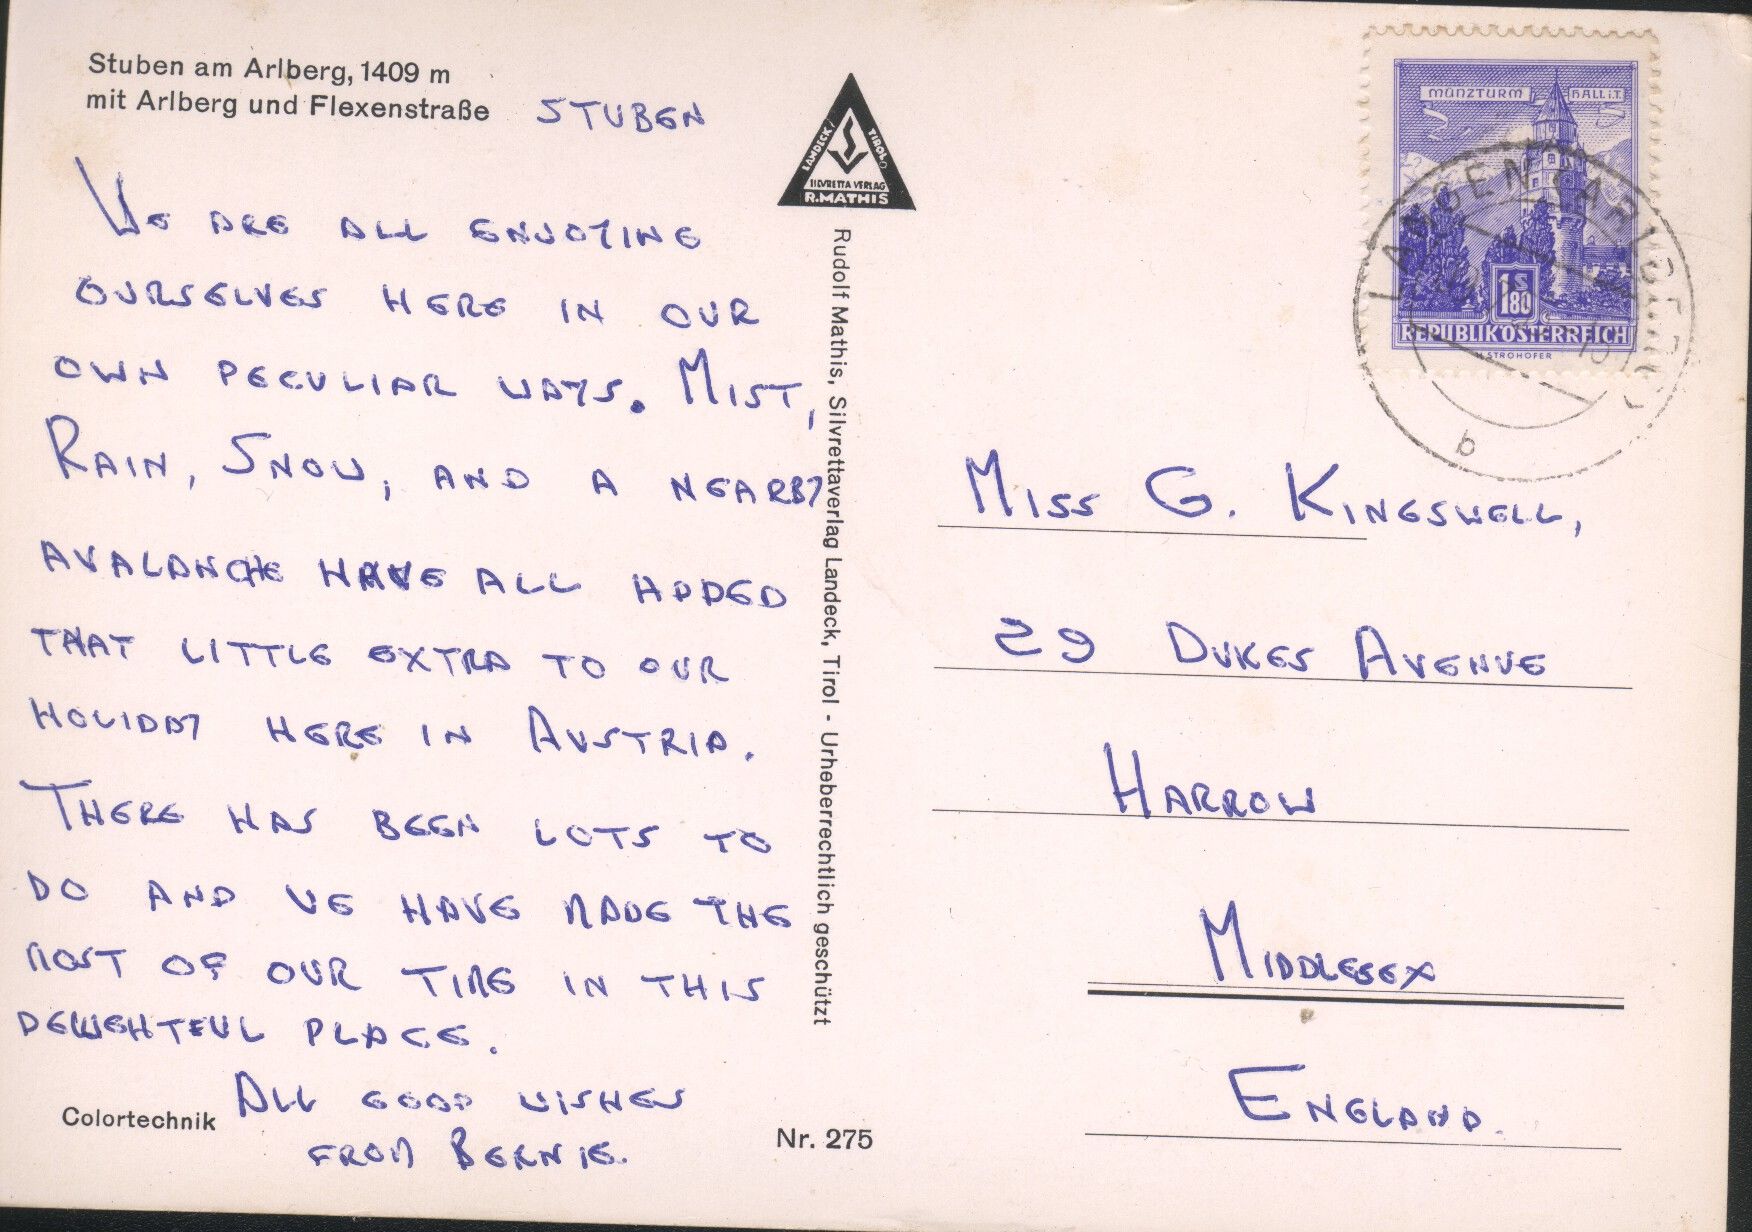 Stuben am Arlberg, 1409 m
mit Arlberg und Flexenstraße
STUBEN
WE ARE ALL ENJOYING
OURSELVES HERE IN OUR
OWN PECULIAR WAYS. MIST,
RAIN, SNOW, AND A NEARBY
AVALANCHE HAVE ALL ADDED
THAT LITTLE EXTRA TO OUR
HOLIDAY HERE IN AUSTRIA.
THERE HAS BEEN LOTS TO
DO AND WE HAVE MADE THE
MOST OF OUR TIME IN THIS
DELIGHTFUL PLACE.
ALL GOOD WISHES
FROM BERNIE.
Colortechnik
Nr. 275
LANDECK / TIROL
SILVRETTA VERLAG
R. MATHIS
Rudolf Mathis, Silvrettaverlag Landeck, Tirol - Urheberrechtlich geschützt
MÜNZTURM HALL i.T.
1 S 80
REPUBLIK ÖSTERREICH
STROHOFER
LANGEN ARLBERG
b
MISS G. KINGSWELL,
29 DUKES AVENUE
HARROW
MIDDLESEX
ENGLAND.